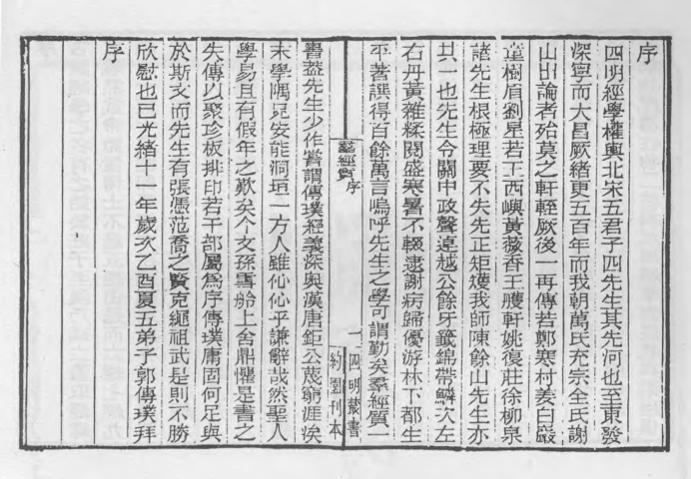 序
四明經學權輿北宋五君子四先生其先河也至東發
深寧而大昌厥緒更五百年而我朝萬氏充宗全氏謝
山出論者殆莫之軒輊厥後一再傳若鄭寒村姜白巖
董樹眉劉星若王西嶼黃薇香王軒姚復莊徐柳泉
諸先生根極理要不失先正矩矱我師陳餘山先生亦
其一也先生令關中政聲卓越公餘牙籤錦帶鱗次左
右丹黃雜糅閱盛寒暑不輟逮謝病歸優游林下都生
平著譔得百餘萬言嗚呼先生之學可謂勤矣羣經質一
羣經質 序
一
四明叢書
約園刊本
書葢先生少作嘗謂傳璞經義深奧漢唐鉅公蔑窮涯涘
末學隅見安能洞垣一方人雖謙辭哉然聖人
學易且有假年之歎矣今文孫雪舲上舍鼎懼是書之
失傳以聚珍板排印若干部屬爲序傳璞庸固何足與
於斯文而先生有張憑范喬之賢克繩祖武是則不勝
欣慰也已光緒十一年歲次乙酉夏五弟子郭傳璞拜
序